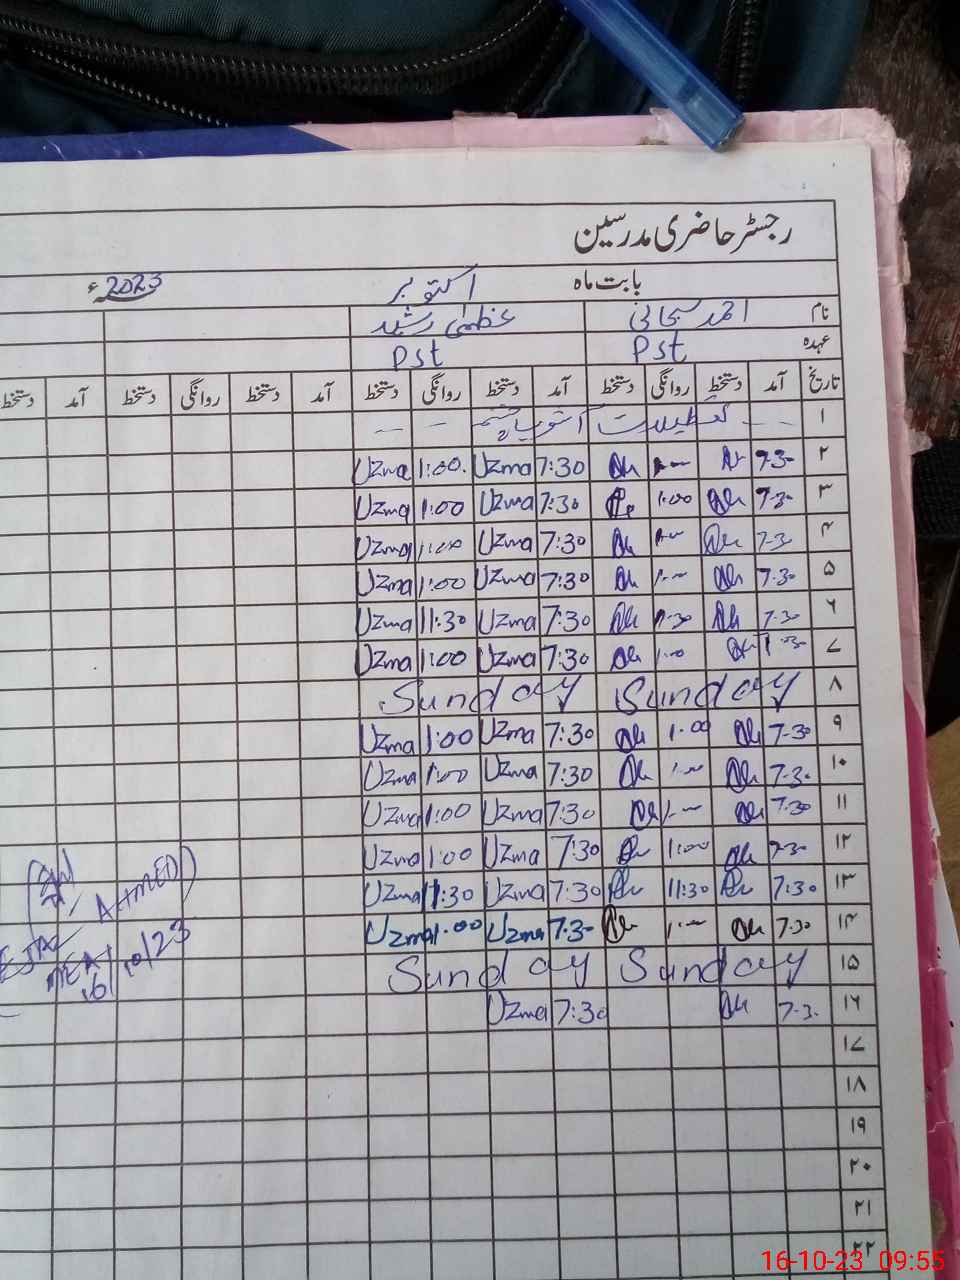 رجسٹر حاضری مدرسین
بابت ماہ اکتوبر 2023ء
نام احمد سبحانی عظمیٰ رشید
عہدہ Pst Pst
تاریخ آمد دستخط روانگی دستخط آمد دستخط روانگی دستخط آمد دستخط روانگی دستخط آمد دستخط
۱ تعطیلات آشوب چشم
۲ 7:30 1:00 7:30 Uzma 1:00 Uzma
۳ 7:30 1:00 7:30 Uzma 1:00 Uzma
۴ 7:30 1:00 7:30 Uzma 1:00 Uzma
۵ 7:30 1:00 7:30 Uzma 1:00 Uzma
۶ 7:30 11:30 7:30 Uzma 11:30 Uzma
۷ 1:00 7:30 Uzma 1:00 Uzma
۸ Sunday Sunday
۹ 7:30 1:00 7:30 Uzma 1:00 Uzma
۱۰ 7:30 1:00 7:30 Uzma 1:00 Uzma
۱۱ 7:30 1:00 7:30 Uzma 1:00 Uzma
۱۲ 7:30 1:00 7:30 Uzma 1:00 Uzma
۱۳ 7:30 11:30 7:30 Uzma 11:30 Uzma
۱۴ 7:30 1:00 7:30 Uzma 1:00 Uzma
۱۵ Sunday Sunday
۱۶ 7:30 7:30 Uzma
۱۷
۱۸
۱۹
۲۰
۲۱
۲۲
AHMED)
MEA
16/10/23
16-10-23 09:55